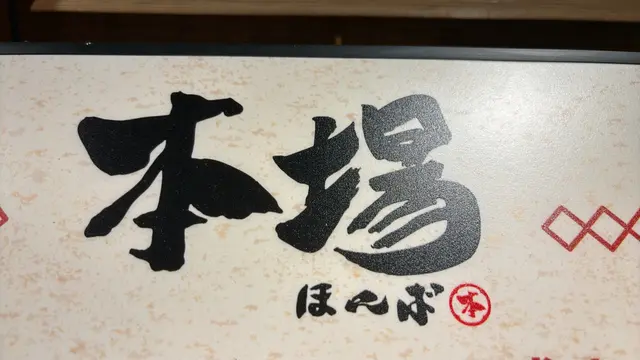 本場
ほんば 本